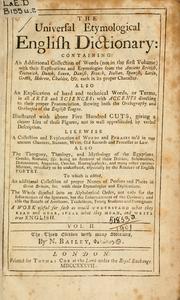 THE
Universal Etymological
English Dictionary:
CONTAINING
An Additional Collection of Words (not in the first Volume)
with their Explications and Etymologies from the Ancient British,
Teutonick, Dutch, Saxon, Danish, French, Italian, Spanish, Latin,
Greek, Hebrew, Chaldee, &c. each in its proper Character.
ALSO
An Explication of hard and technical Words, or Terms,
in all ARTS and SCIENCES; with ACCENTS directing
to their proper Pronuntiation, shewing both the Orthography and
Orthoepia of the English Tongue.
Illustrated with above Five Hundred CUTS, giving a
clearer Idea of those Figures, not so well apprehended by verbal
Description.
LIKEWISE
A Collection and Explanation of WORDS and PHRASES us'd in our
ancient Charters, Statutes, Writs, Old Records and Processes at Law.
ALSO
The Theogony, Theology, and Mythology of the Egyptians,
Greeks, Romans, &c. being an Account of their Deities, Solemnities,
Divinations, Auguries, Oracles, Hieroglyphicks, and many other curious
Matters, necessary to be understood, especially by the Readers of English
POETRY.
To which is added,
An additional Collection of proper Names of Persons and Places in
Great Britain, &c. with their Etymologies and Explications.
The Whole digested into an Alphabetical Order, not only for the
Information of the Ignorant, but the Entertainment of the Curious; and
also the Benefit of Artificers, Tradesmen, Young Students and Foreigners.
A WORK useful for such as would UNDERSTAND what they
READ and HEAR, SPEAK what they MEAN, and WRITE
true ENGLISH.
VOL. II.
The Third Edition with many Additions.
By N. BAILEY,
LONDON:
Printed for THOMAS COX at the Lamb under the Royal Exchange
MDCCXXXVII.